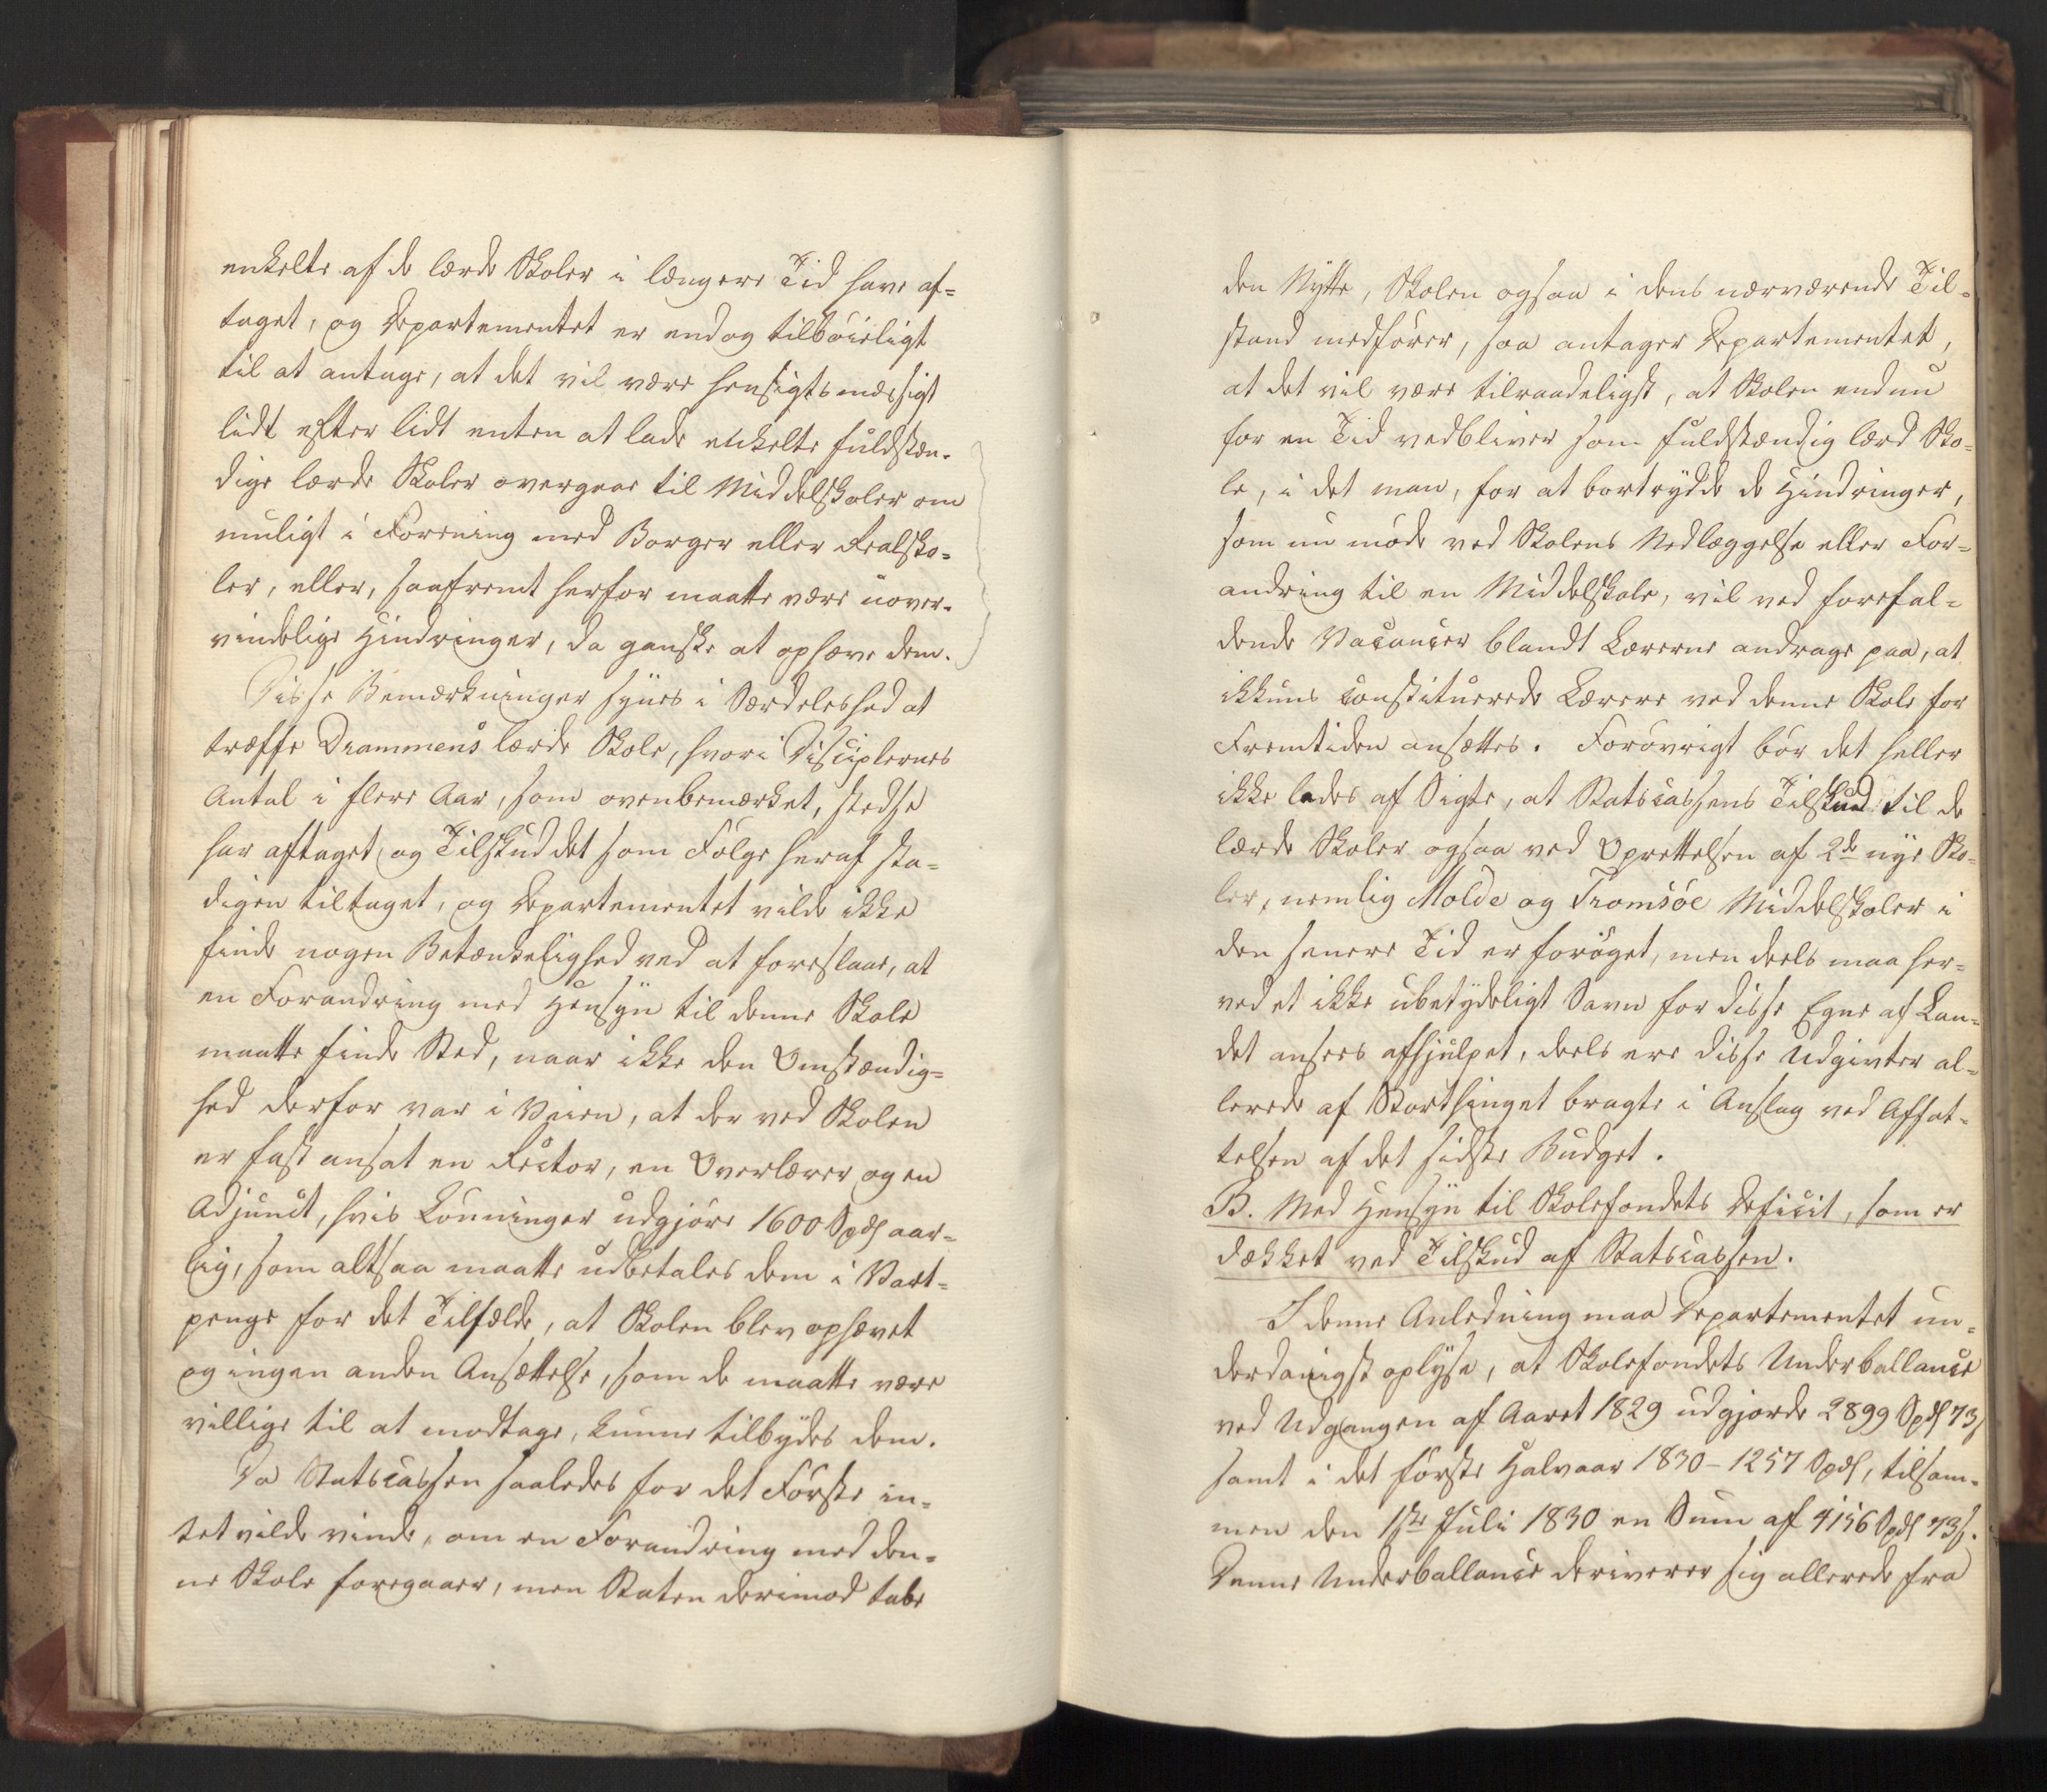 enkelte af de lærde Skoler i længere Tid have af=
taget, og Departementet er endog tilböieligt
til at antage, at det vil være hensigtsmæssigt
lidt efter lidt enten at lade enkelte fuldstæn-
dige lærde Skoler overgaae til Middelskoler om
muligt i Forening med Borger eller Realsko=
ler, eller, saafremt herfor maatte være uover-
vindelige Hindringer, da ganske at ophæve dem.
Disse Bemærkninger synes i Særdeleshed at
træffe Drammens lærde Skole, hvori Disciplernes
Antal i flere Aar, som ovenbemærket, stedse
har aftaget og Tilskuddet som Fölge heraf sta=
digen tiltaget, og Departementet vilde ikke
finde nogen Betænkelighed ved at foreslaae, at
en Forandring med Hensyn til denne Skole
maatte finde Sted, naar ikke den Omstændig=
hed derfor var i Veien, at der ved Skolen
er fast ansat en Rector, en Overlærer og en
Adjunct, hvis Lönninger udgjöre 1600 Spd aar=
lig, som altsaa maatte udbetales dem i Vart=
penge for det Tilfælde, at Skolen blev ophævet
og ingen anden Ansættelse, som de maatte være
villige til at modtage, kunne tilbydes dem.
Da Statscassen saaledes for det Förste in=
tet vilde vinde, om en Forandring med den=
ne Skole foregaaer, men Staten derimod tabe
den Nytte, Skolen ogsaa i dens nærværende Til=
stand medförer, saa antager Departementet,
at det vil være tilraadeligst, at Skolen endnu
for en Tid vedbliver som fuldstændig lærd Sko=
le, i det man, for at bortrydde de Hindringer,
som nu möde ved Skolens Nedlæggelse eller For=
andring til en Middelskole, vil ved forefal=
dende Vacancer blandt Lærerne andrage paa, at
ikkuns constituerede Lærere ved denne Skole for
Fremtiden ansættes. Forövrigt bör det heller
ikke lades af Sigte, at Statscassens Tilskud til de
lærde Skoler ogsaa ved Oprettelsen af 2de nye Sko=
ler, nemlig Molde og Tromsöe Middelskoler i
den senere Tid er foröget, men deels maa her=
ved et ikke ubetydeligt Savn for disse Egne af Lan=
det ansees afhjulpet, deels ere disse Udgivter al=
lerede af Storthinget bragte i Anslag ved Affat=
telsen af det sidste Budget.
B. Med Hensyn til Skolefondets Deficit, som er
dækket ved Tilskud af Statscassen.
I denne Anledning maa Departementet un=
derdanigst oplyse, at Skolefondets Underballance
ved Udgangen af Aaret 1829 udgjorde 2899 Spd 73 s
samt i det förste Halvaar 1830 - 1257 Spd, tilsam=
men den 1ste Juli 1830 en Sum af 4156 Spd 73 s.
Denne Underballance deriverer sig allerede fra